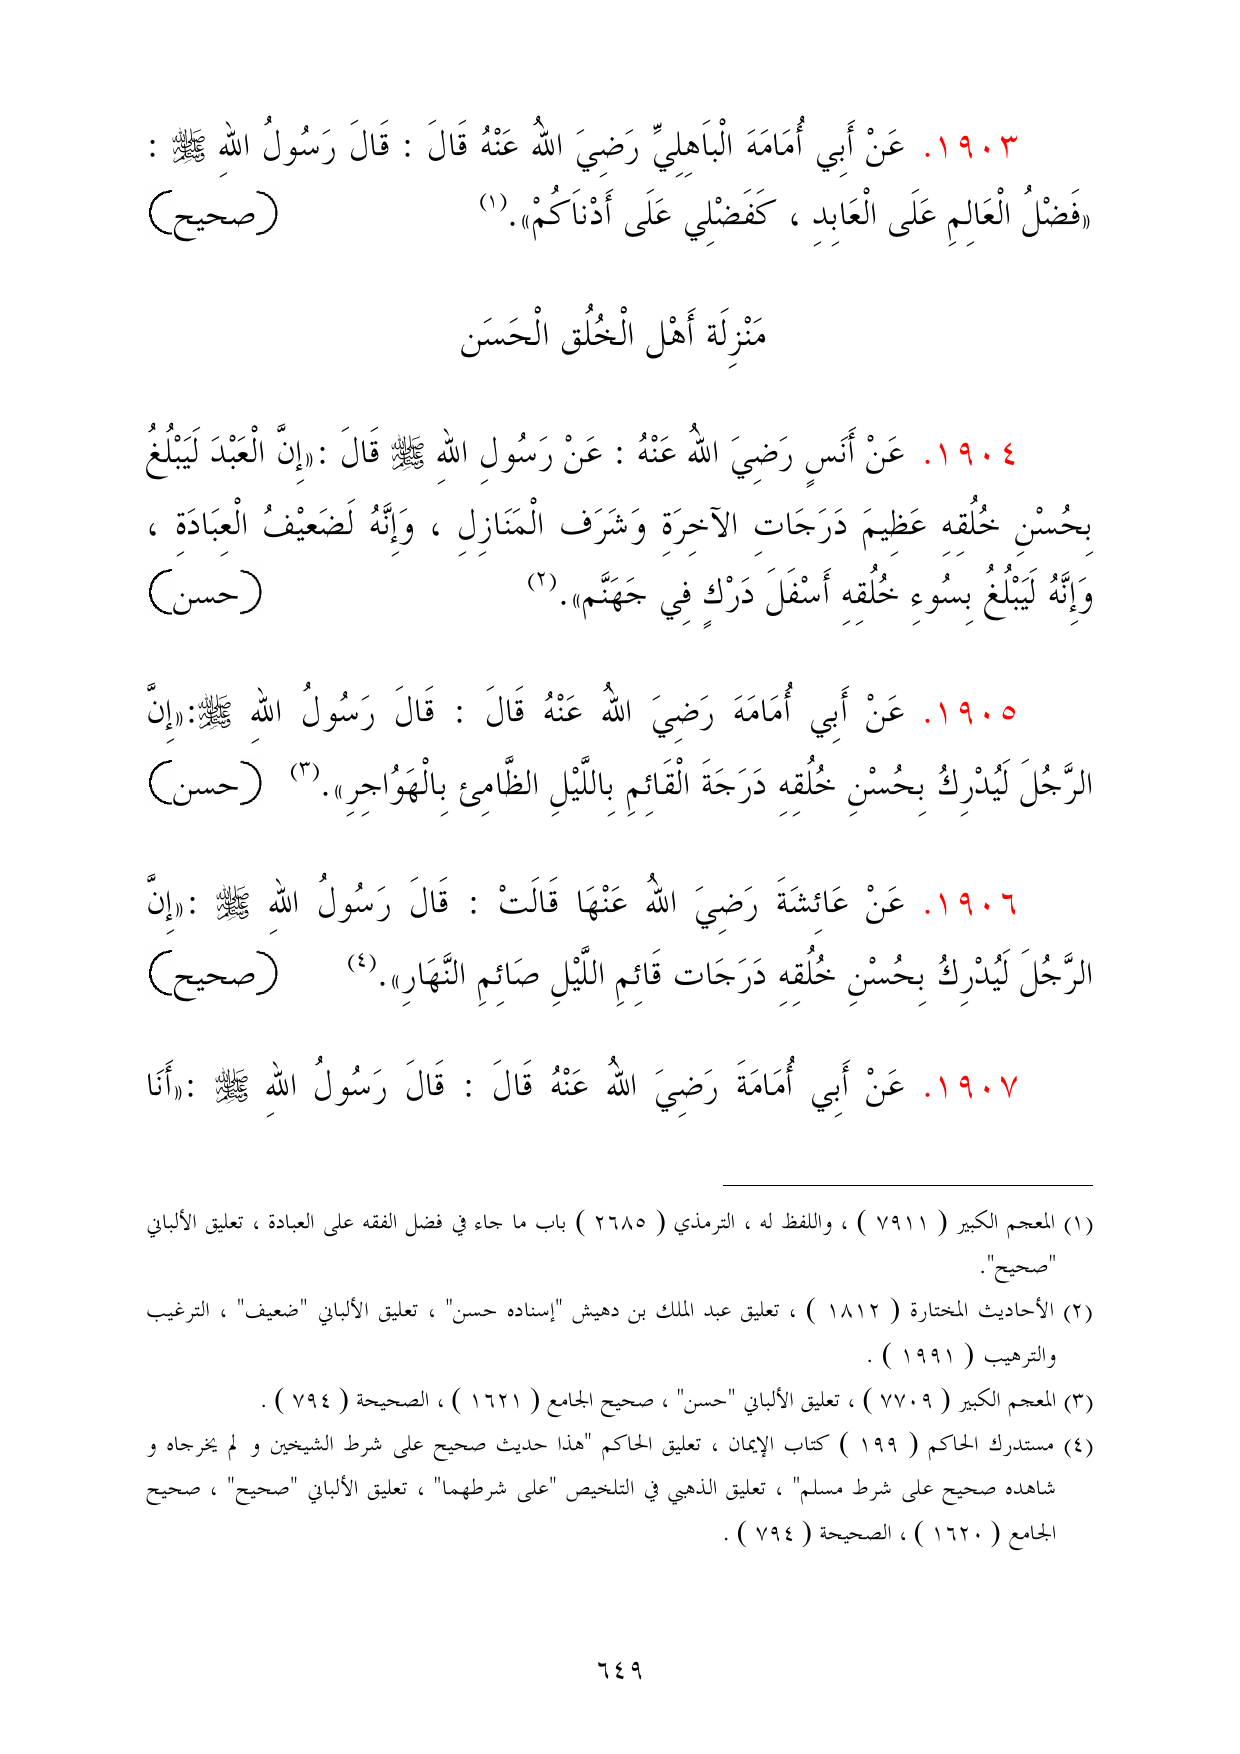 ١٩٠٣. عَنْ أَبِي أُمَامَةَ الْبَاهِلِيِّ رَضِيَ اللهُ عَنْهُ قَالَ : قَالَ رَسُولُ اللهِ ﷺ :
«فَضْلُ الْعَالِمِ عَلَى الْعَابِدِ ، كَفَضْلِي عَلَى أَدْنَاكُمْ».(١) (صحيح)
مَنْزِلَة أَهْل الْخُلُق الْحَسَن
١٩٠٤. عَنْ أَنَسٍ رَضِيَ اللهُ عَنْهُ : عَنْ رَسُولِ اللهِ ﷺ قَالَ :«إِنَّ الْعَبْدَ لَيَبْلُغُ
بِحُسْنِ خُلُقِهِ عَظِيمَ دَرَجَاتِ الآخِرَةِ وَشَرَف الْمَنَازِلِ ، وَإِنَّهُ لَضَعَيْفُ الْعِبَادَةِ ،
وَإِنَّهُ لَيَبْلُغُ بِسُوءِ خُلُقِهِ أَسْفَلَ دَرْكٍ فِي جَهَنَّم».(٢) (حسن)
١٩٠٥. عَنْ أَبِي أُمَامَةَ رَضِيَ اللهُ عَنْهُ قَالَ : قَالَ رَسُولُ اللهِ ﷺ:«إِنَّ
الرَّجُلَ لَيُدْرِكُ بِحُسْنِ خُلُقِهِ دَرَجَةَ الْقَائِمِ بِاللَّيْلِ الظَّامِئ بِالْهَوُاجِرِ».(٣) (حسن)
١٩٠٦. عَنْ عَائِشَةَ رَضِيَ اللهُ عَنْهَا قَالَتْ : قَالَ رَسُولُ اللهِ ﷺ :«إِنَّ
الرَّجُلَ لَيُدْرِكُ بِحُسْنِ خُلُقِهِ دَرَجَات قَائِمِ اللَّيْلِ صَائِمِ النَّهَارِ».(٤) (صحيح)
١٩٠٧. عَنْ أَبِي أُمَامَةَ رَضِيَ اللهُ عَنْهُ قَالَ : قَالَ رَسُولُ اللهِ ﷺ :«أَنَا
(١) المعجم الكبير ( ٧٩١١ ) ، واللفظ له ، الترمذي ( ٢٦٨٥ ) باب ما جاء في فضل الفقه على العبادة ، تعليق الألباني
"صحيح".
(٢) الأحاديث المختارة ( ١٨١٢ ) ، تعليق عبد الملك بن دهيش "إسناده حسن" ، تعليق الألباني "ضعيف" ، الترغيب
والترهيب ( ١٩٩١ ) .
(٣) المعجم الكبير ( ٧٧٠٩ ) ، تعليق الألباني "حسن" ، صحيح الجامع ( ١٦٢١ ) ، الصحيحة ( ٧٩٤ ) .
(٤) مستدرك الحاكم ( ١٩٩ ) كتاب الإيمان ، تعليق الحاكم "هذا حديث صحيح على شرط الشيخين و لم يخرجاه و
شاهده صحيح على شرط مسلم" ، تعليق الذهبي في التلخيص "على شرطهما" ، تعليق الألباني "صحيح" ، صحيح
الجامع ( ١٦٢٠ ) ، الصحيحة ( ٧٩٤ ) .
٦٤٩